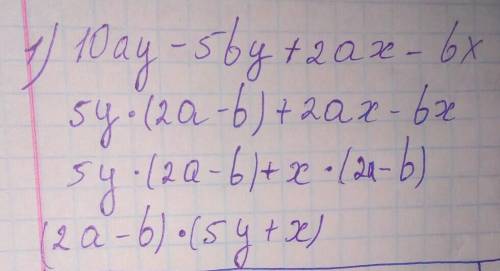 1) 10ay - 5by + 2ax - bx
5y · (2a - b) + 2ax - bx
5y · (2a - b) + x · (2a - b)
(2a - b) · (5y + x)